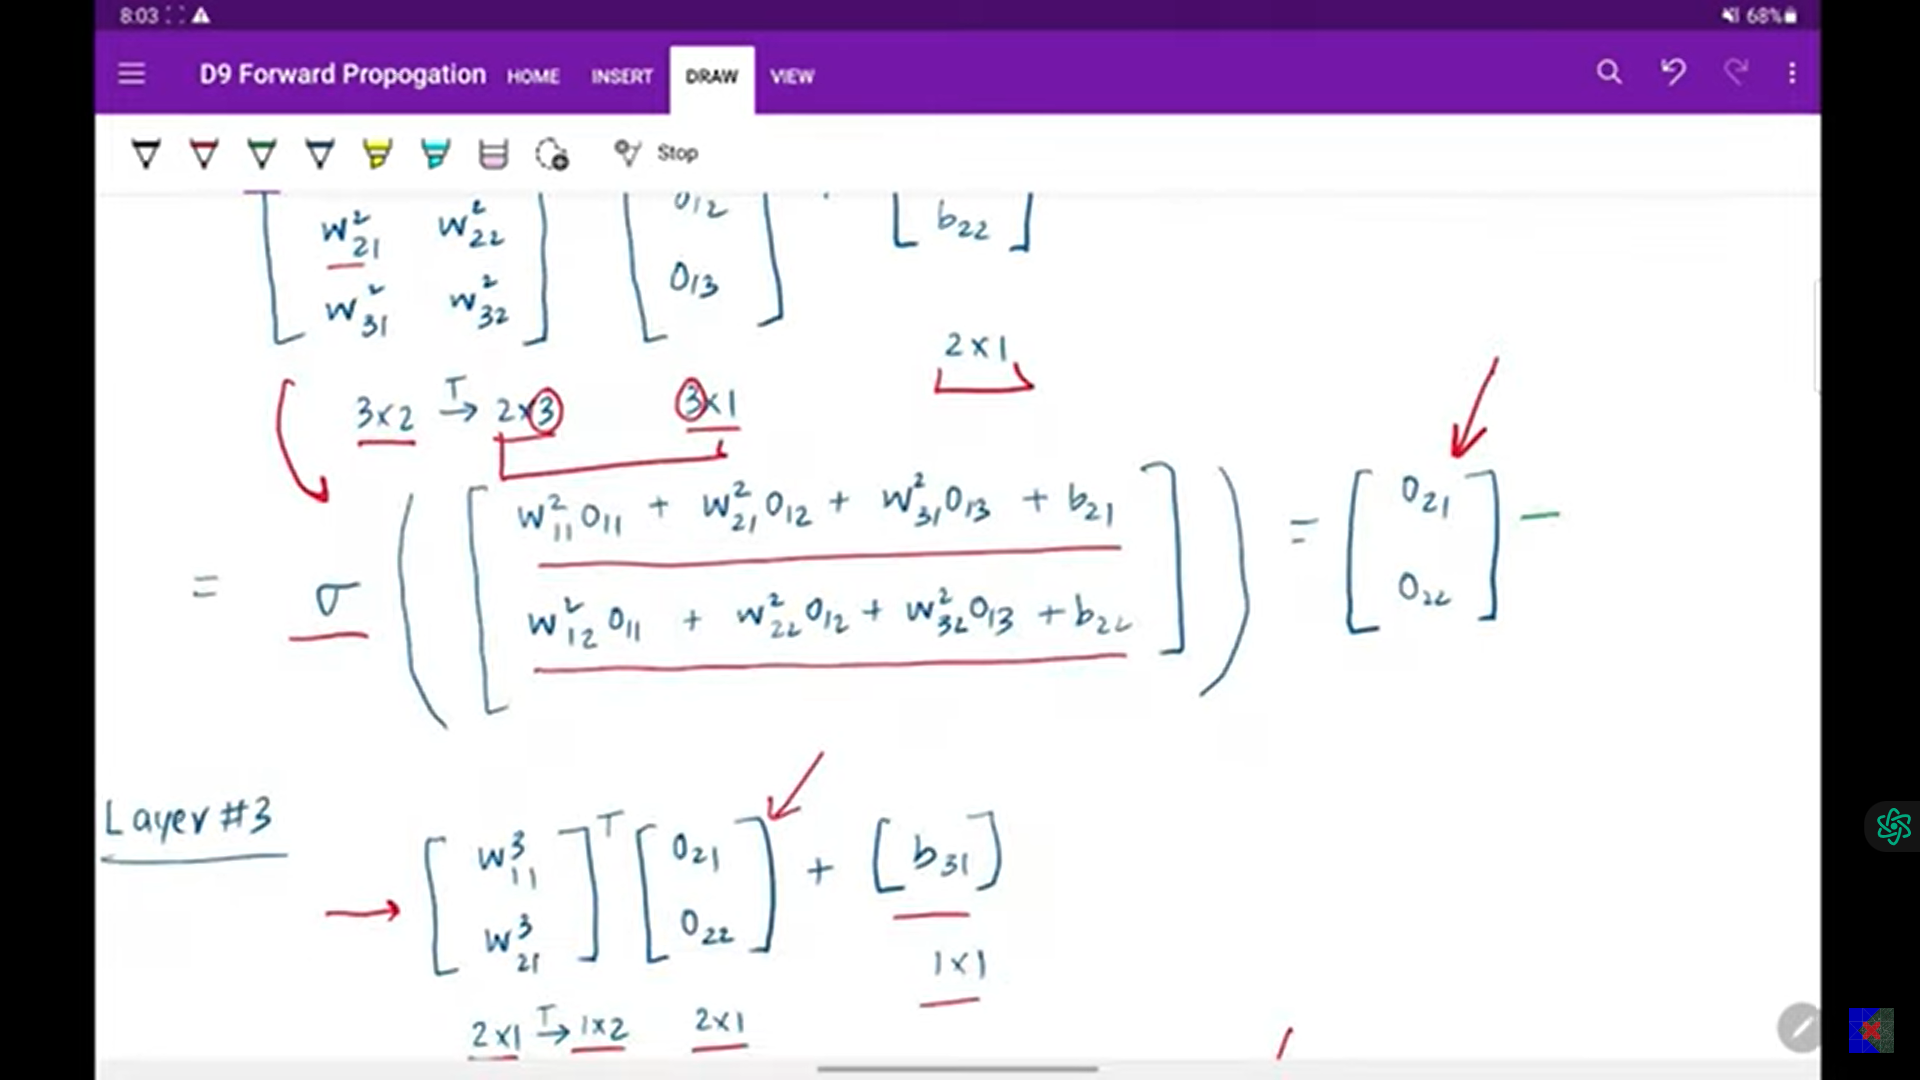 8:03 68%
D9 Forward Propogation HOME INSERT DRAW VIEW
Stop
O12
w²21 w²22 b22
w²31 w²32 O13
2×1
3×2 T→ 2×3 3×1
w²11 O11 + w²21 O12 + w²31 O13 + b21
= σ ( [ ] ) = [ O21 O22 ] –
w²12 O11 + w²22 O12 + w²32 O13 + b22
Layer #3
[ w³11 w³21 ]ᵀ [ O21 O22 ] + [ b31 ]
1×1
2×1 T→ 1×2 2×1